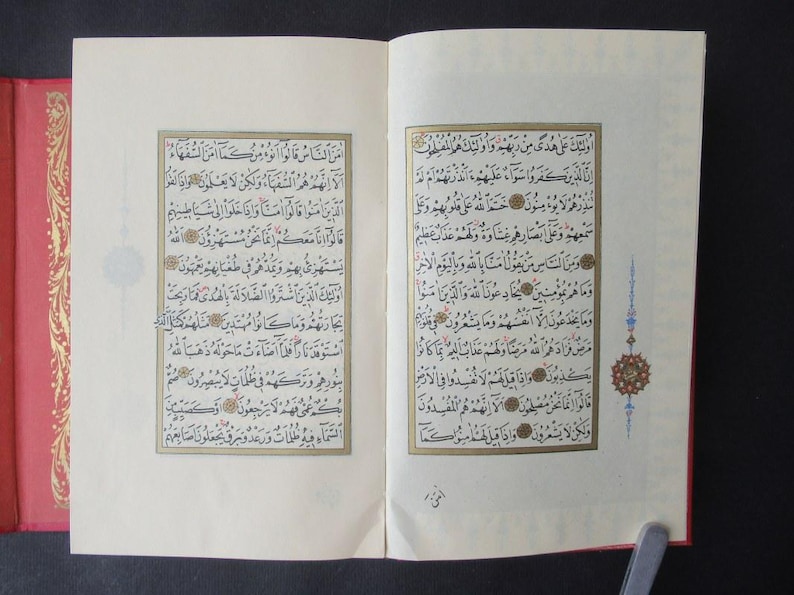 اُولٰٓئِكَ عَلٰى هُدًى مِنْ رَبِّهِمْ وَاُولٰٓئِكَ هُمُ الْمُفْلِحُونَ
اِنَّ الَّذِينَ كَفَرُوا سَوَٓاءٌ عَلَيْهِمْ ءَاَنْذَرْتَهُمْ اَمْ لَمْ
تُنْذِرْهُمْ لَا يُؤْمِنُونَ خَتَمَ اللّٰهُ عَلٰى قُلُوبِهِمْ وَعَلٰى
سَمْعِهِمْ وَعَلٰٓى اَبْصَارِهِمْ غِشَاوَةٌ وَلَهُمْ عَذَابٌ عَظِيمٌ
وَمِنَ النَّاسِ مَنْ يَقُولُ اٰمَنَّا بِاللّٰهِ وَبِالْيَوْمِ الْاٰخِرِ
وَمَا هُمْ بِمُؤْمِنِينَ يُخَادِعُونَ اللّٰهَ وَالَّذِينَ اٰمَنُوا
وَمَا يَخْدَعُونَ اِلَّٓا اَنْفُسَهُمْ وَمَا يَشْعُرُونَ فِي قُلُوبِهِمْ
مَرَضٌ فَزَادَهُمُ اللّٰهُ مَرَضًا وَلَهُمْ عَذَابٌ اَلِيمٌ بِمَا كَانُوا
يَكْذِبُونَ وَاِذَا قِيلَ لَهُمْ لَا تُفْسِدُوا فِي الْاَرْضِ
قَالُٓوا اِنَّمَا نَحْنُ مُصْلِحُونَ اَلَٓا اِنَّهُمْ هُمُ الْمُفْسِدُونَ
وَلٰكِنْ لَا يَشْعُرُونَ وَاِذَا قِيلَ لَهُمْ اٰمِنُوا كَمَٓا
اٰمَنَ
اٰمَنَ النَّاسُ قَالُٓوا اَنُؤْمِنُ كَمَٓا اٰمَنَ السُّفَهَٓاءُ
اَلَٓا اِنَّهُمْ هُمُ السُّفَهَٓاءُ وَلٰكِنْ لَا يَعْلَمُونَ وَاِذَا لَقُوا
الَّذِينَ اٰمَنُوا قَالُٓوا اٰمَنَّا وَاِذَا خَلَوْا اِلٰى شَيَاطِينِهِمْ
قَالُٓوا اِنَّا مَعَكُمْ اِنَّمَا نَحْنُ مُسْتَهْزِؤُنَ اَللّٰهُ
يَسْتَهْزِئُ بِهِمْ وَيَمُدُّهُمْ فِي طُغْيَانِهِمْ يَعْمَهُونَ
اُولٰٓئِكَ الَّذِينَ اشْتَرَوُا الضَّلَالَةَ بِالْهُدٰى فَمَا رَبِحَتْ
تِجَارَتُهُمْ وَمَا كَانُوا مُهْتَدِينَ مَثَلُهُمْ كَمَثَلِ الَّذِي
اسْتَوْقَدَ نَارًا فَلَمَّٓا اَضَٓاءَتْ مَا حَوْلَهُ ذَهَبَ اللّٰهُ
بِنُورِهِمْ وَتَرَكَهُمْ فِي ظُلُمَاتٍ لَا يُبْصِرُونَ صُمٌّ
بُكْمٌ عُمْيٌ فَهُمْ لَا يَرْجِعُونَ اَوْ كَصَيِّبٍ مِنَ
السَّمَٓاءِ فِيهِ ظُلُمَاتٌ وَرَعْدٌ وَبَرْقٌ يَجْعَلُونَ اَصَابِعَهُمْ